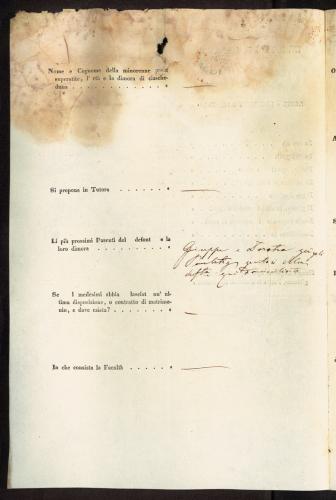 Nome e Cognome della minorenne prole
superstite, l' età e la dimora di ciasche-
duno . . . . . . . . . . . . . .
Si propone in Tutore . . . . . . .
Li più prossimi Parenti del defont e la
loro dimora . . . . . . . . . .
Giuseppe e Dorotea
Se i medesimi abbia lasciat un' ul-
tima disposizione, o contratto di matrimo-
nio, e dove esista? . . . . . . . .
In che consista la Facoltà . . . . .